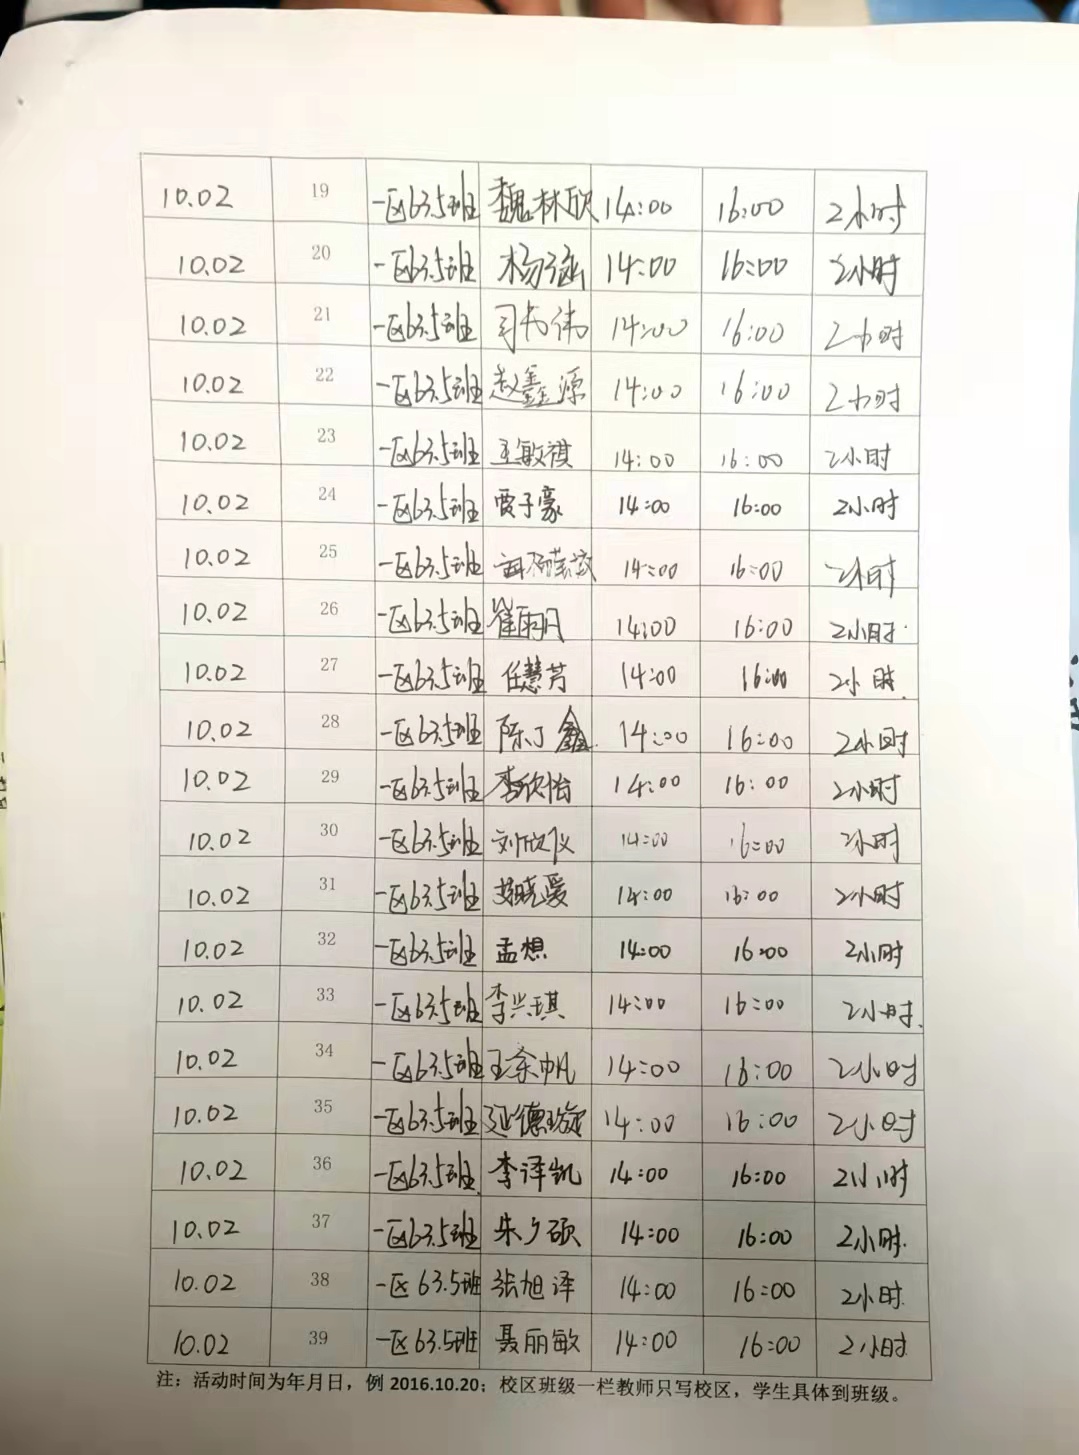 10.02 19 一区63.5班 魏林欣 14:00 16:00 2小时
10.02 20 一区63.5班 杨涵 14:00 16:00 2小时
10.02 21 一区63.5班 14:00 16:00 2小时
10.02 22 一区63.5班 赵鑫源 14:00 16:00 2小时
10.02 23 一区63.5班 王敏祺 14:00 16:00 2小时
10.02 24 一区63.5班 贾子豪 14:00 16:00 2小时
10.02 25 一区63.5班 14:00 16:00 2小时
10.02 26 一区63.5班 崔雨月 14:00 16:00 2小时
10.02 27 一区63.5班 任慧芳 14:00 16:00 2小时
10.02 28 一区63.5班 陈丁鑫 14:00 16:00 2小时
10.02 29 一区63.5班 李欣怡 14:00 16:00 2小时
10.02 30 一区63.5班 刘欣仪 14:00 16:00 2小时
10.02 31 一区63.5班 14:00 16:00 2小时
10.02 32 一区63.5班 孟想 14:00 16:00 2小时
10.02 33 一区63.5班 李兴琪 14:00 16:00 2小时
10.02 34 一区63.5班 14:00 16:00 2小时
10.02 35 一区63.5班 延德璇 14:00 16:00 2小时
10.02 36 一区63.5班 李译凯 14:00 16:00 2小时
10.02 37 一区63.5班 朱夕硕 14:00 16:00 2小时
10.02 38 一区63.5班 张旭泽 14:00 16:00 2小时
10.02 39 一区63.5班 聂丽敏 14:00 16:00 2小时
注：活动时间为年月日，例 2016.10.20；校区班级一栏教师只写校区，学生具体到班级。